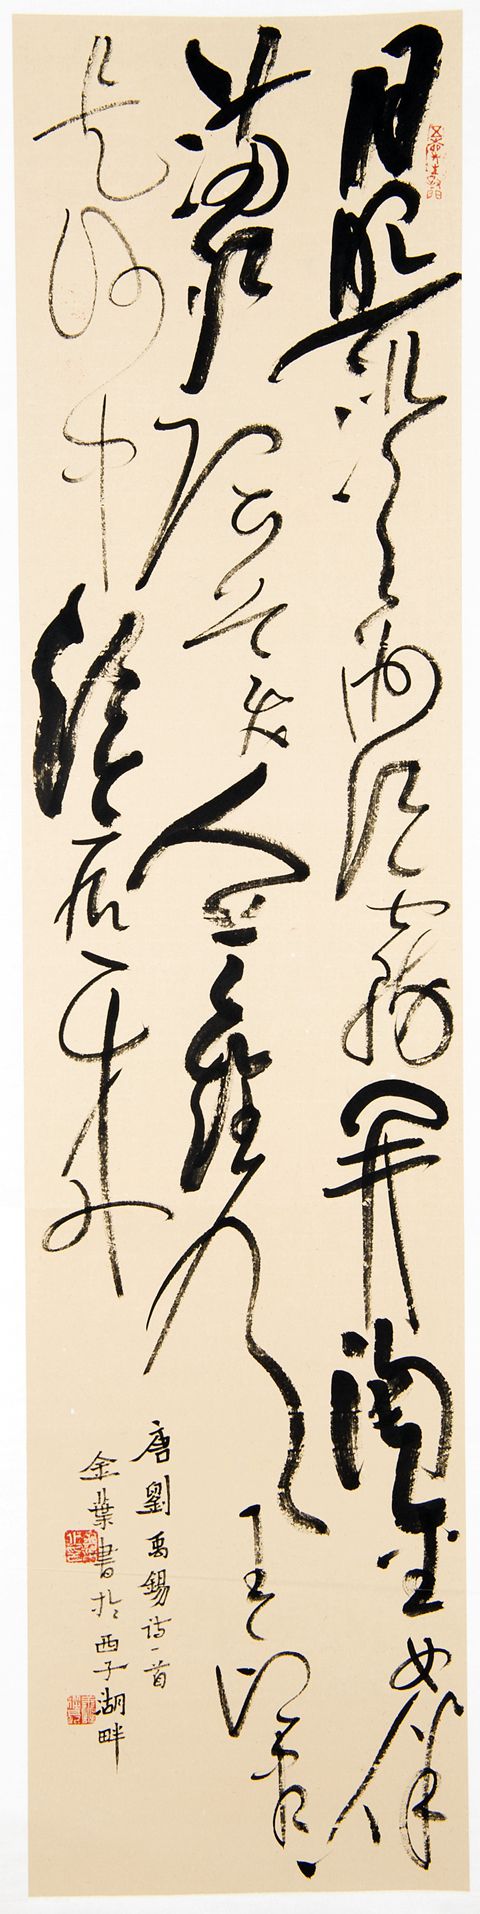 日照澄洲江霧開淘金女伴
滿江隈美人首飾侯王印盡
是沙中浪底来
唐劉禹錫诗一首
金葉書於西子湖畔